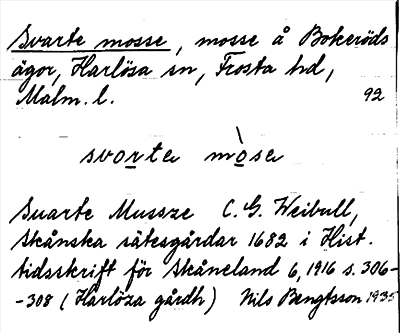 Svarte mosse, mosse å Bokeröds
ägor, Harlösa sn, Frosta hd,
Malm. l. 92
svorta mòsa
Suarte Mussze C. G. Weibull,
Skånska sätesgårdar 1682 i Hist.
tidsskrift för Skåneland 6, 1916 s. 306-
-308 (Harlöza gårdh) Nils Bengtsson 1935